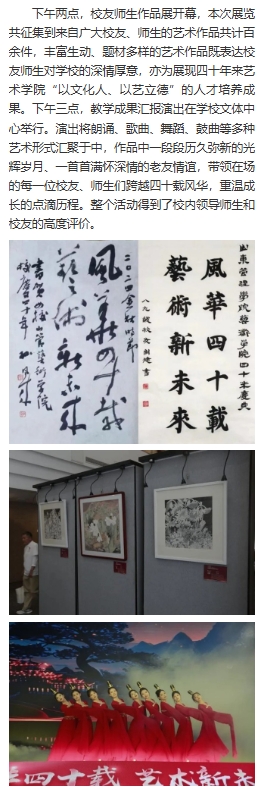 下午两点，校友师生作品展开幕，本次展览
共征集到来自广大校友、师生的艺术作品共计百
余件，丰富生动、题材多样的艺术作品既表达校
友师生对学校的深情厚意，亦为展现四十年来艺
术学院“以文化人、以艺立德”的人才培养成
果。下午三点，教学成果汇报演出在学校文体中
心举行。演出将朗诵、歌曲、舞蹈、鼓曲等多种
艺术形式汇聚于中，作品中一段段历久弥新的光
辉岁月、一首首满怀深情的老友情谊，带领在场
的每一位校友、师生们跨越四十载风华，重温成
长的点滴历程。整个活动得到了校内领导师生和
校友的高度评价。
風華四十載
藝術新未來
風華四十載
藝術新未來
四十载 艺术新未